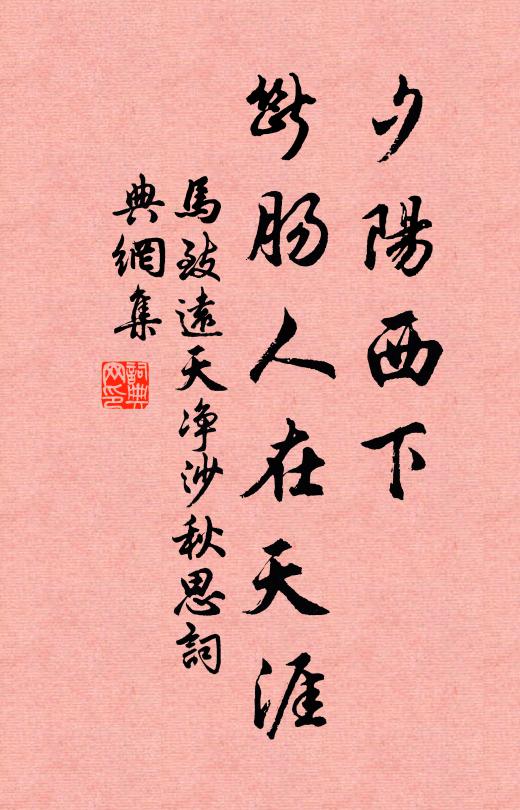 夕陽西下
斷腸人在天涯
馬致遠天净沙秋思詞
典網集
詞典網印